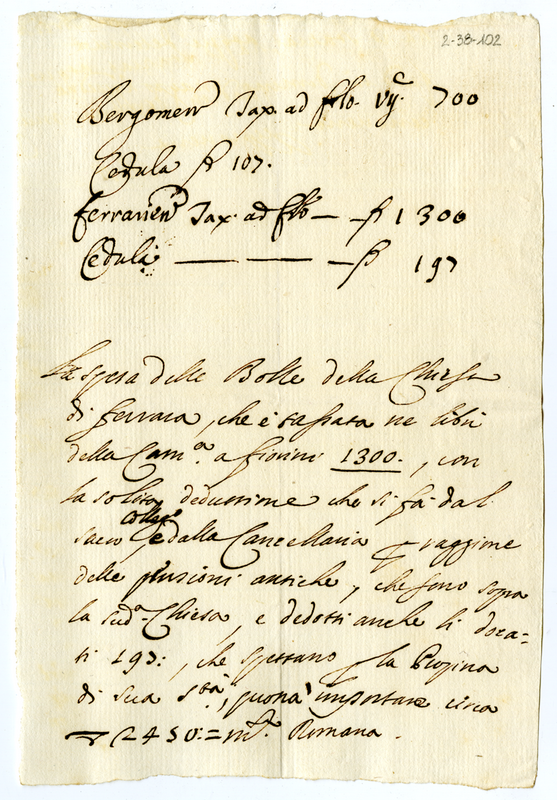 2-38-102
Bergomen Tax. ad flo. 700
Cedula 107.
ferrarien Tax. ad flo — 1300
Cedula — — — 197
La spesa delle Bolle della Chiesa
di ferrara, che è tassata ne libri
della Cam.ª a fiorini 1300., con
la solita deduttione che si fà dal
Colleg.º
sacro, e dalla Cancellaria raggione
delle antiche, che sono sopra
la sud.ª Chiesa, e dedotti anche li duca-
ti 197:, che spettano la Propina
di sua S.tà, importare circa
2450:= m.ta Romana.